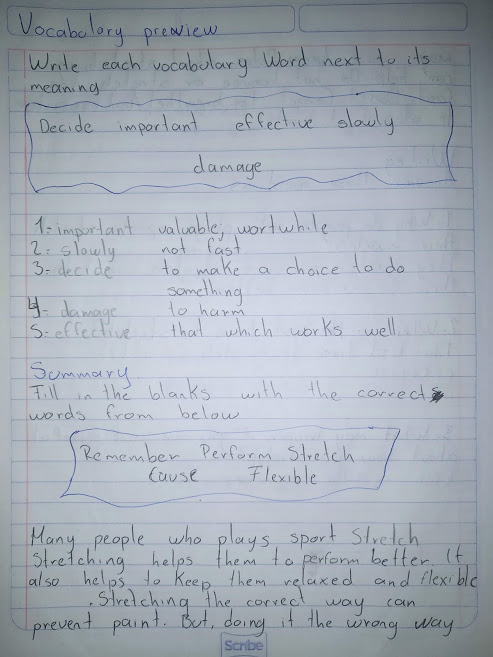 Vocabulary preview
Write each vocabulary Word next to its
meaning
Decide important effective slowly
damage
1= important valuable, wortwhile
2= slowly not fast
3= decide to make a choice to do
something
4= damage to harm
5= effective that which works well
Summary
Fill in the blanks with the corrects
words from below
Remember Perform Stretch
Cause Flexible
Many people who plays sport Stretch
Stretching helps them to perform better. It
also helps to keep them relaxed and flexible
. Stretching the correct way can
prevent paint. But, doing it the wrong way
Scribe